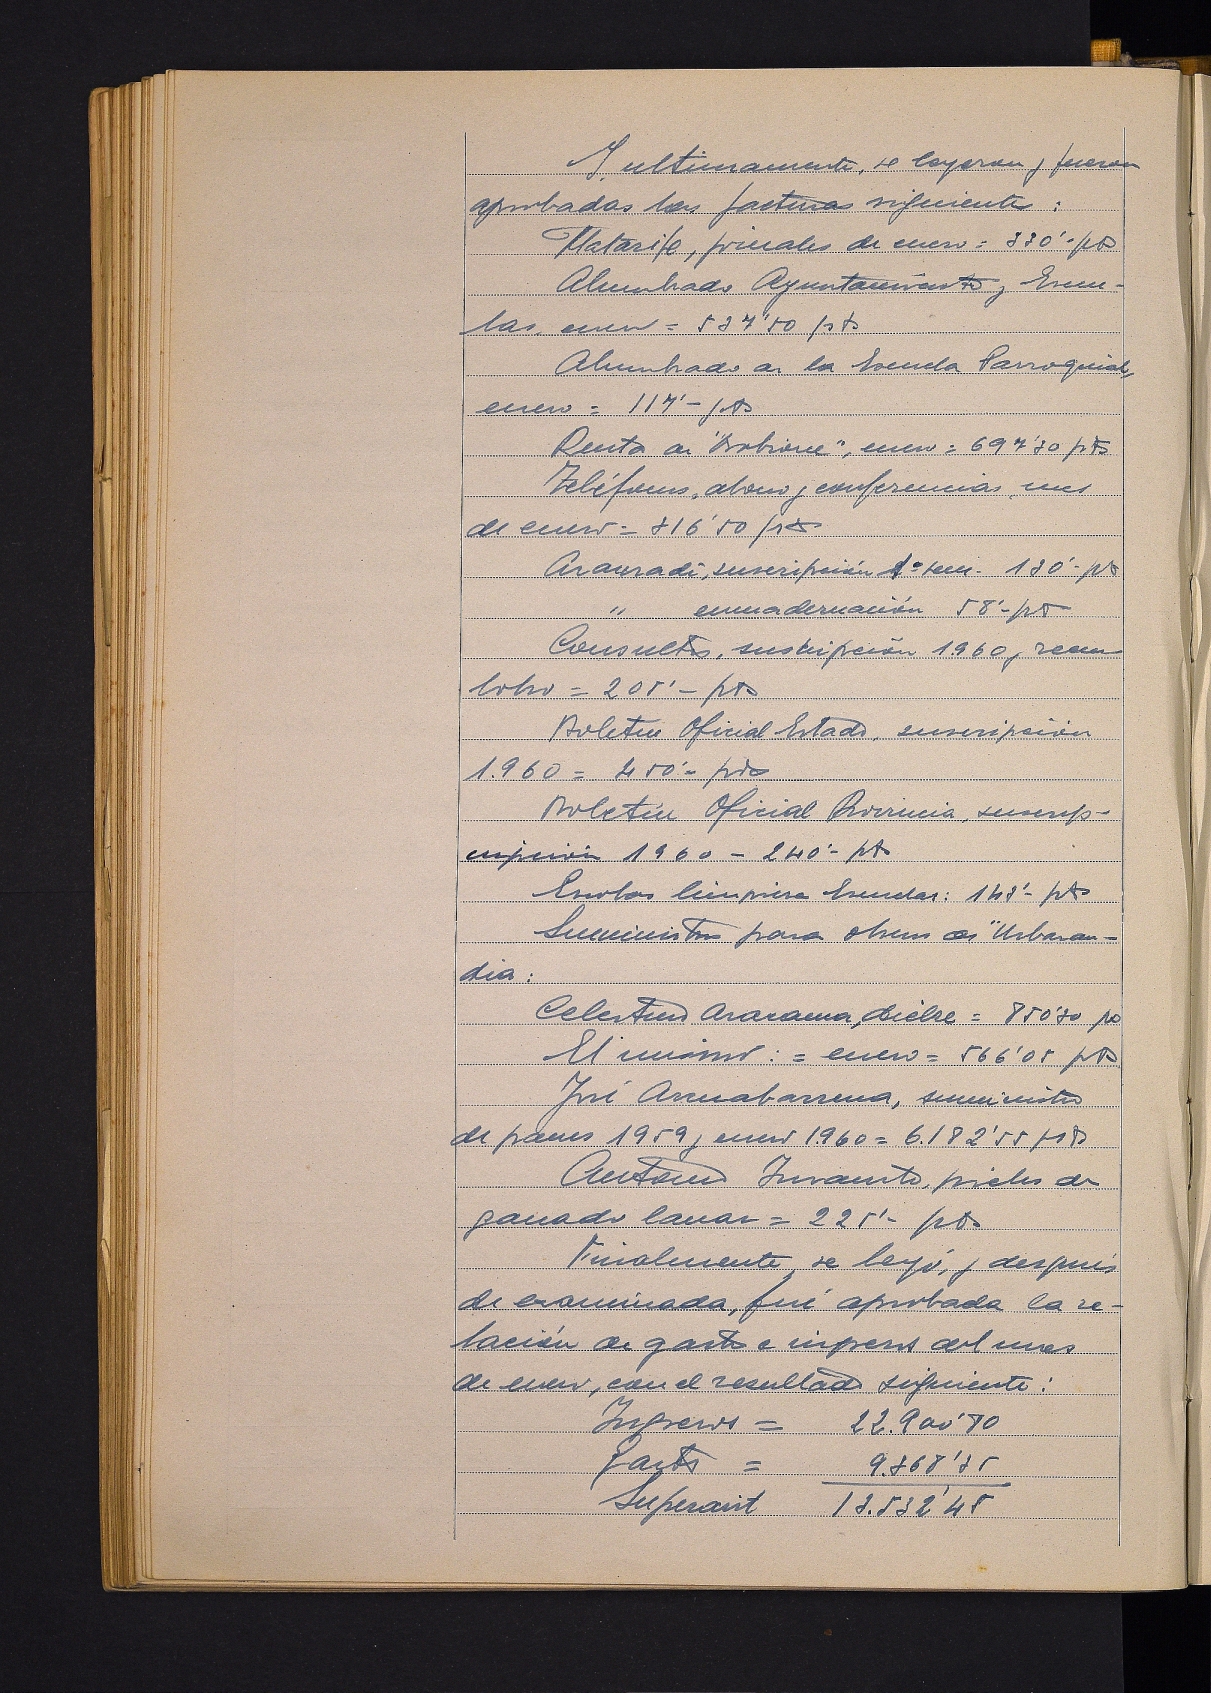 Y, ultimamente, se leyeron y fueron
aprobadas las facturas siguientes:
Matarife, jornales de enero = 330'- pts
Alumbrado Ayuntamiento y Escue-
las, enero = 537'50 pts
Alumbrado de la Escuela Parroquial,
enero = 117'- pts
Renta de enero = 697'30 pts
Teléfonos, abono y conferencias, mes
de enero = 316'50 pts
Aranzadi, suscripción 1º sem. 130'- pts
" encuadernación 58'- pts
Consultor, suscripción 1960 y reem-
bolso = 205'- pts
Boletín Oficial Estado, suscripción
1.960 = 450'- pts
Boletín Oficial Provincia, suscrip-
cripción 1960 - 240'- pts
Escobas limpieza Escuelas: 143'- pts
Suministros para obras de "Urbaran-
dia:
Celestino diciembre = 850'30 pts
El mismo: = enero = 566'05 pts
José Arrizabarrena, suministro
de panes 1959 y enero 1960 = 6.182'55 pts
Antonio pieles de
ganado lanar = 225'- pts
Finalmente, se leyó, y después
de examinada, fué aprobada la re-
lación de gastos e ingresos del mes
de enero, con el resultado siguiente:
Ingresos = 22.900'80
Gastos = 9.368'35
Superavit 13.532'45